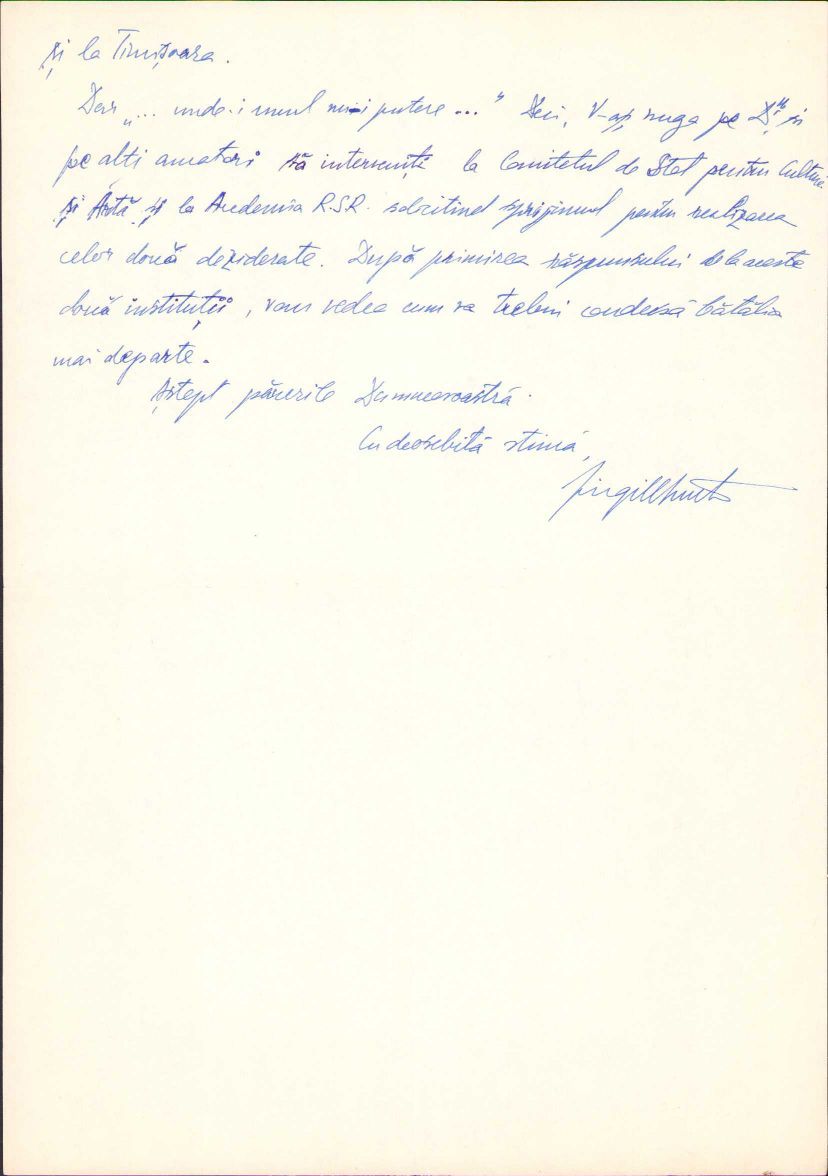 și la Timișoara.
Dar „... unde-i unul nu-i putere ..." Deci, V-aș ruga pe Dv. și
pe alți amatori să interveniți la Comitetul de Stat pentru Cultură
și Artă și la Academia R.S.R. solicitînd sprijinul pentru realizarea
celor două deziderate. După primirea răspunsului de la aceste
două instituții, vom vedea cum va trebui condusă bătălia
mai departe.
Aștept părerile Dumneavoastră.
Cu deosebită stimă,